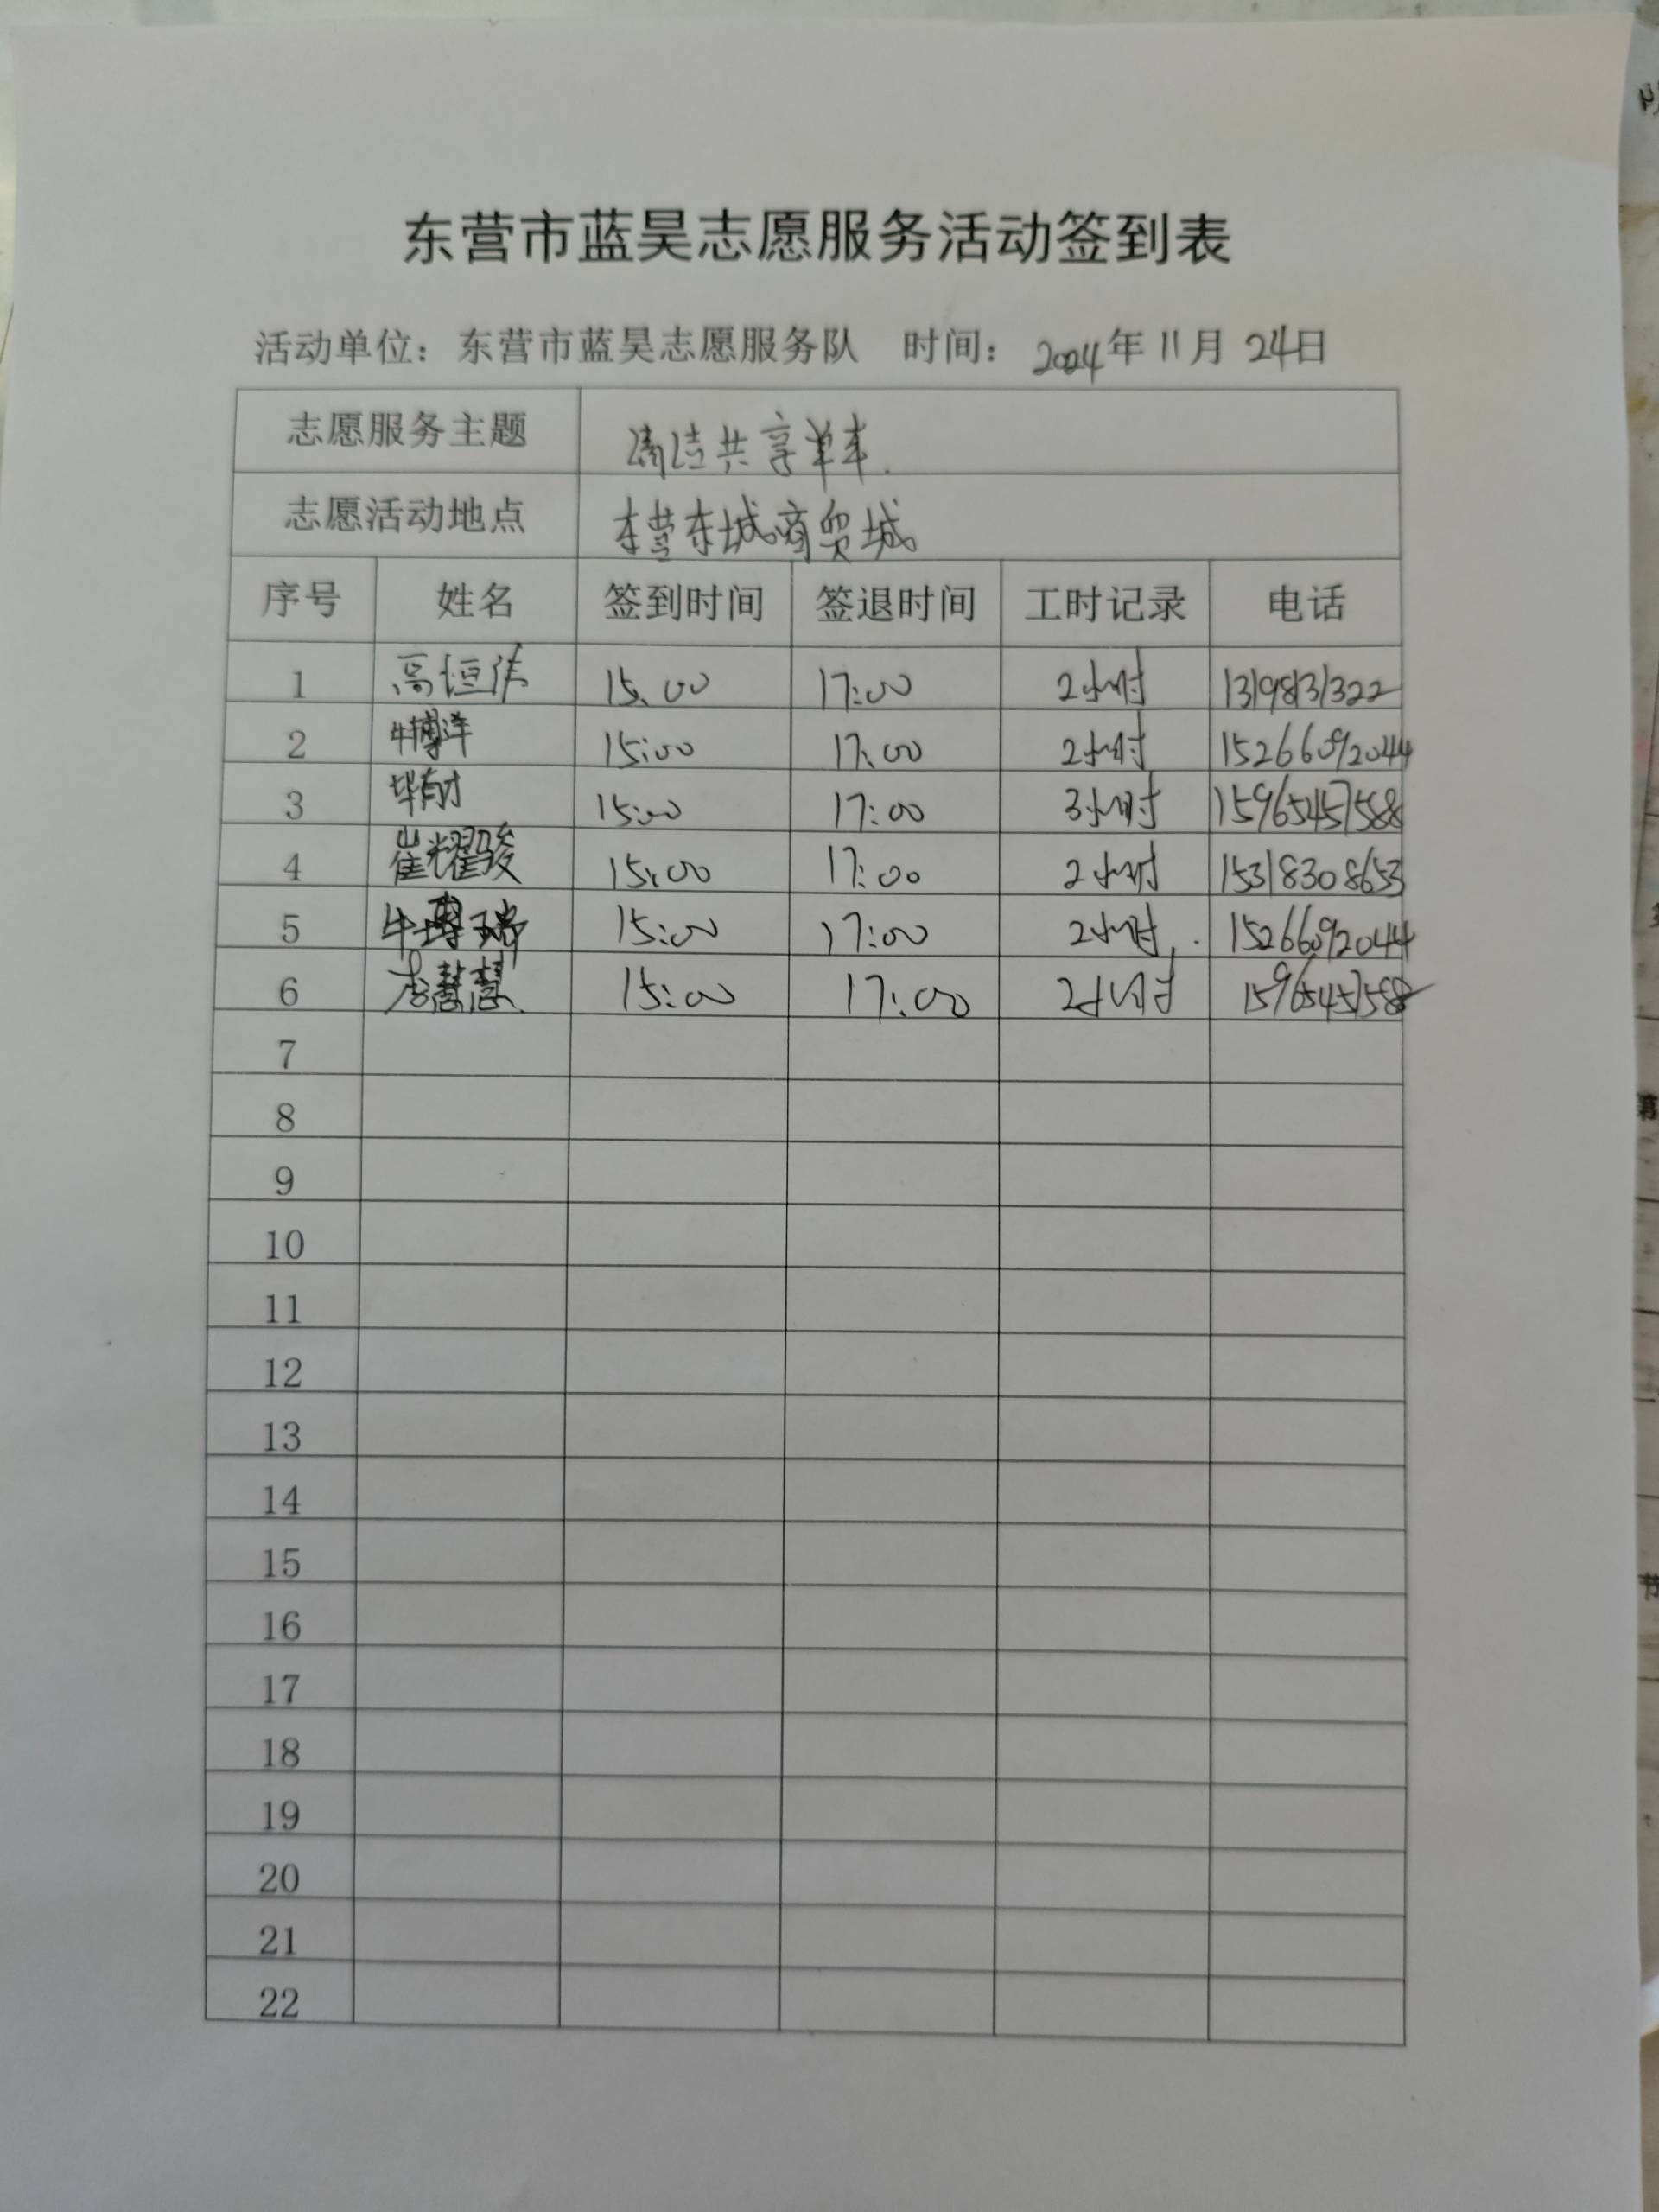 东营市蓝昊志愿服务活动签到表
活动单位：东营市蓝昊志愿服务队 时间：2024年11月24日
志愿服务主题 清洁共享单车.
志愿活动地点 东营东城商贸城
序号 姓名 签到时间 签退时间 工时记录 电话
1 高恒伟 15:00 17:00 2小时 13198131322
2 牛博洋 15:00 17:00 2小时 15266092044
3 15:00 17:00 3小时 15965457588
4 崔耀骏 15:00 17:00 2小时 15318308653
5 牛博瑞 15:00 17:00 2小时 15266092044
6 李慧慧 15:00 17:00 2小时 15965457588
7
8
9
10
11
12
13
14
15
16
17
18
19
20
21
22